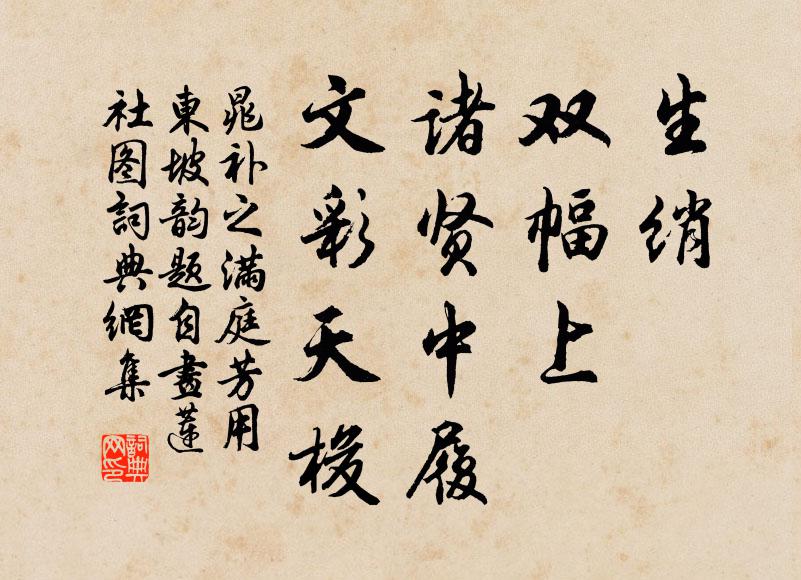 生绡
双幅上
诸贤中履
文彩天梭
晁补之满庭芳用
東坡韵题自畫蓮
社图詞典網集
詞典网印